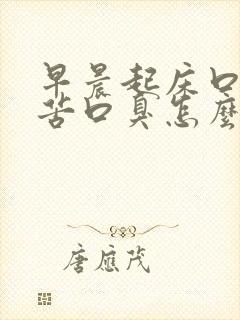 早晨起床口
苦口臭怎麼
唐應茂